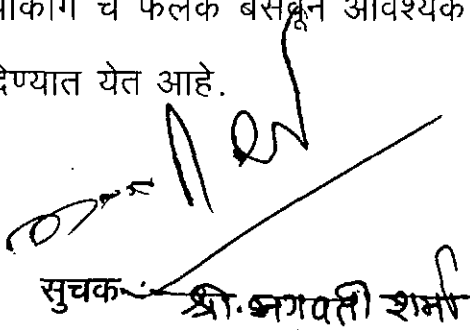 पार्कींग चे फलक बसवून आवश्यक
देण्यात येत आहे.
सुचक:- श्री. भगवती शर्मा